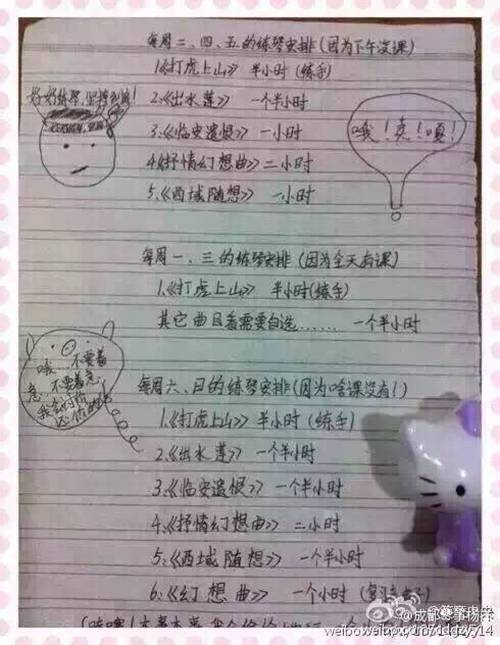 每周二、四、五的练琴安排(因为下午没课)
1.《打虎上山》 半小时(练手)
好好练琴,
2.《出水莲》 一个半小时
3.《临安遗恨》 一小时
哦!卖!嘎!
4.《抒情幻想曲》 二小时
5.《西域随想》 一小时
每周一、三的练琴安排(因为全天有课)
1.《打虎上山》 半小时(练手)
其它曲目看需要自选…… 一个半小时
哦…不要着
急,不要着急
我会讨价
还价的
每周六、日的练琴安排(因为啥课没有!)
1.《打虎上山》半小时(练手)
2.《出水莲》 一个半小时
3.《临安遗恨》 一个半小时
4.《抒情幻想曲》 二小时
5.《西域随想》 一个半小时
6.《幻想曲》 一个小时